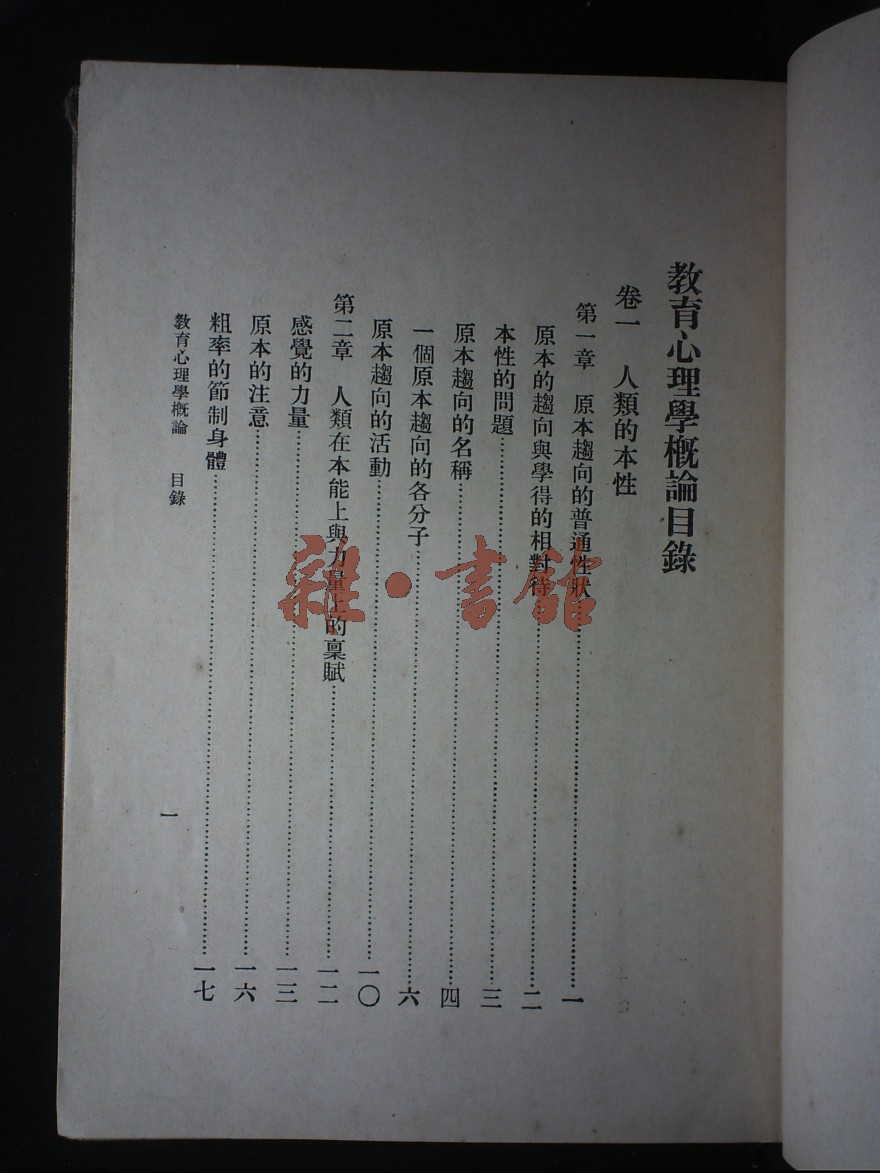 教育心理學概論目錄
卷一　人類的本性
第一章　原本趨向的普通性狀……一
原本的趨向與學得的相對待……二
本性的問題……三
原本趨向的名稱……四
一個原本趨向的各分子……六
原本趨向的活動……一〇
第二章　人類在本能上與力量上的稟賦……一二
感覺的力量……一三
原本的注意……一六
粗率的節制身體……一七
教育心理學概論　目錄
一
雜·書館